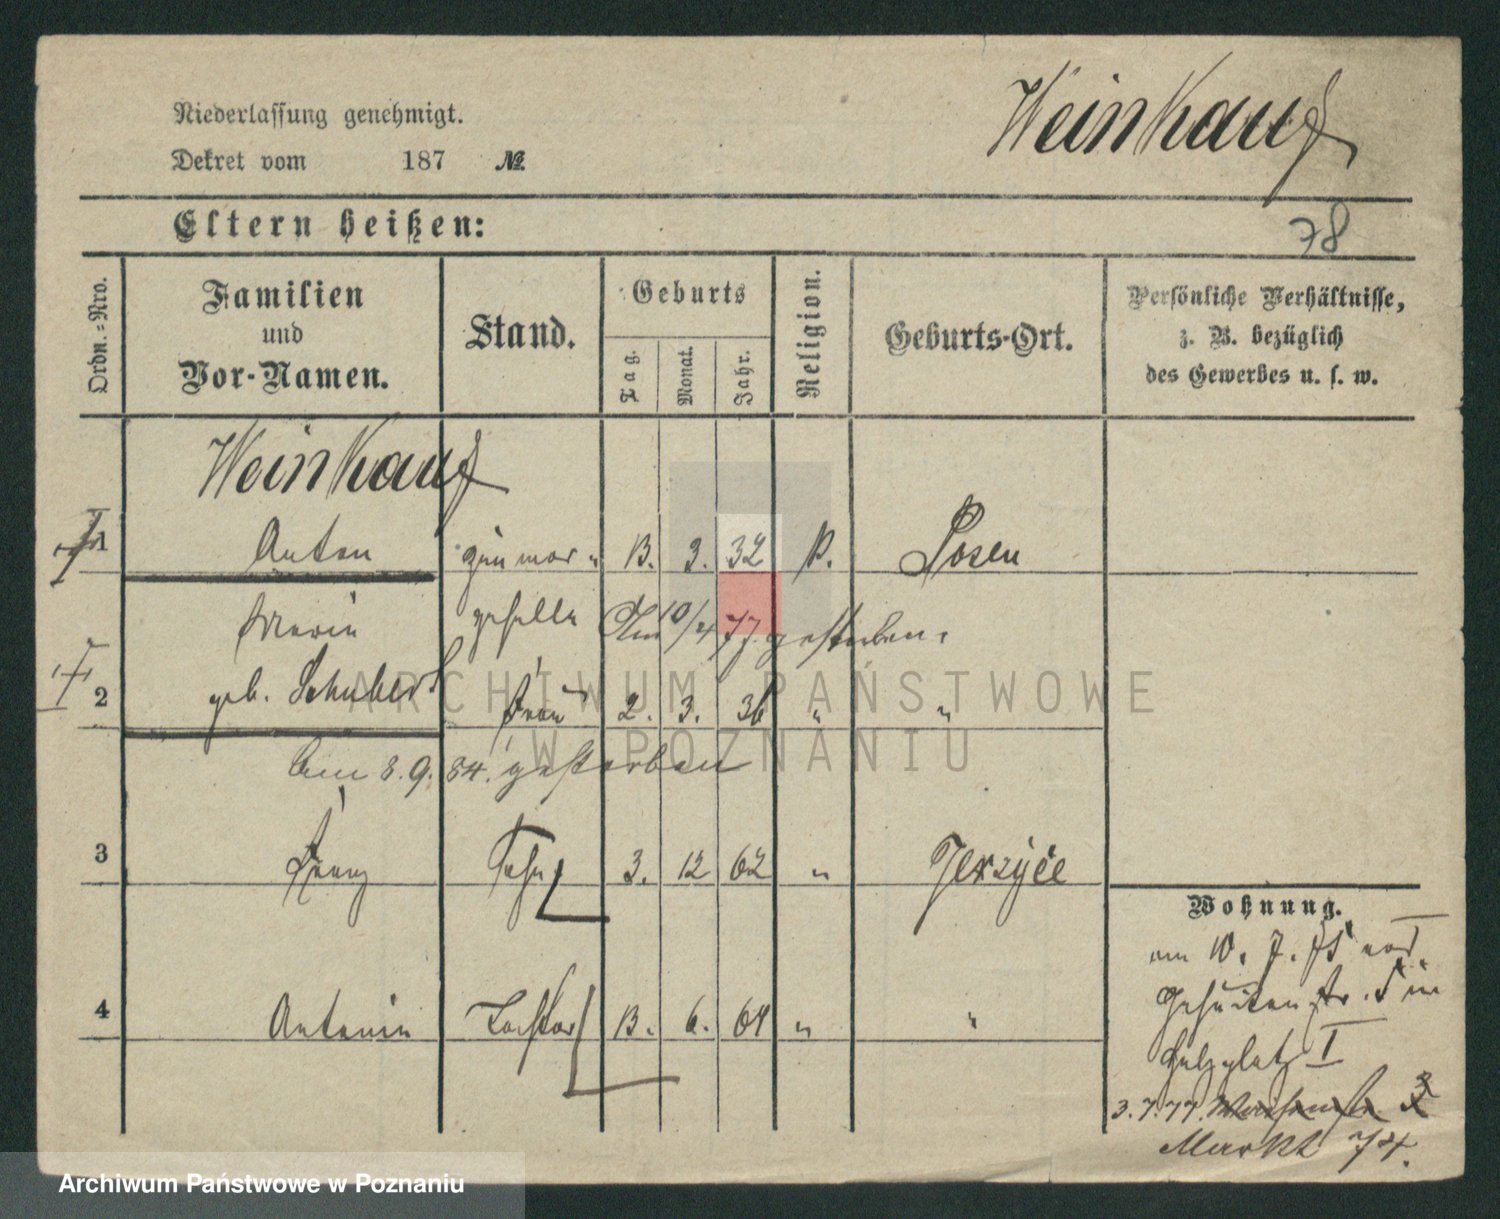 Niederlassung genehmigt.
Weinkauf
Dekret vom 187 №
Eltern heißen:
78
Ordn.=Nro.
Familien
und
Vor-Namen.
Stand.
Geburts
Tag.
Monat.
Jahr.
Religion.
Geburts-Ort.
Persönliche Verhältnisse,
z. B. bezüglich
des Gewerbes u. s. w.
Weinkauf
1 Anton 13. 3. 32 Posen
geselle Am 10/4 77 gestorben.
2 geb. Schubert Frau 2. 3. 36 " "
Am 8. 9. 84. gestorben
3 Franz Sohn 3. 12 62 " Jerzyce
4 Antonin Tochter 13. 6. 64 " "
Wohnung.
am 10. 7. 75
3. 7. 77.
Markt 74.
ARCHIWUM PAŃSTWOWE
W POZNANIU
Archiwum Państwowe w Poznaniu